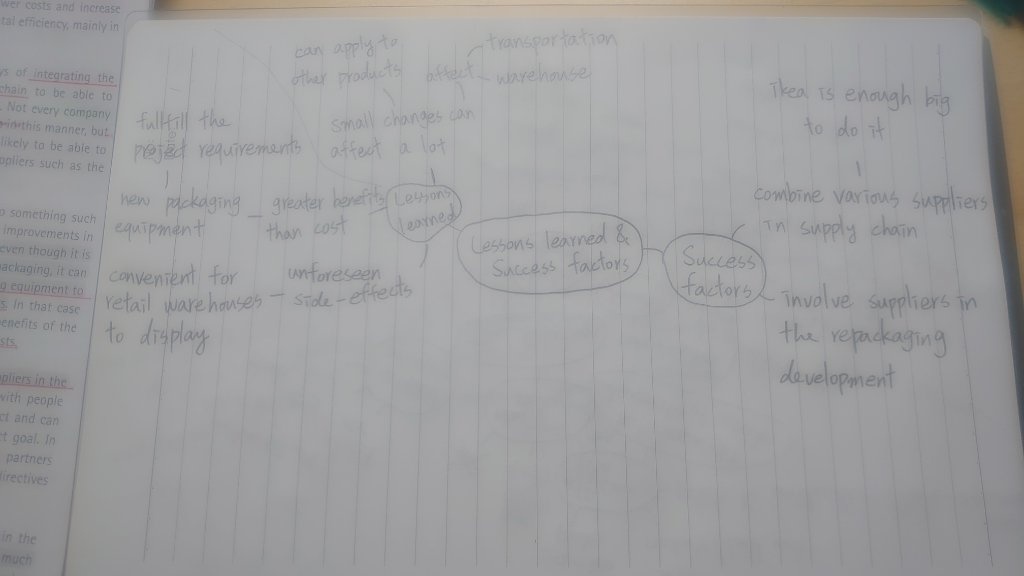 wer costs and increase
tal efficiency, mainly in
ys of integrating the
chain to be able to
. Not every company
in this manner, but
likely to be able to
ppliers such as the
o something such
improvements in
even though it is
packaging, it can
g equipment to
s. In that case
benefits of the
sts.
ppliers in the
with people
ct and can
t goal. In
partners
directives
in the
much
can apply to
other products
affect
transportation
warehouse
small changes can
affect a lot
fullfill the
project requirements
new packaging
equipment
greater benefits
than cost
Lessons
learned
convenient for
retail warehouses
to display
unforeseen
side-effects
Lessons learned &
Success factors
Success
factors
Ikea is enough big
to do it
combine various suppliers
in supply chain
involve suppliers in
the repackaging
development